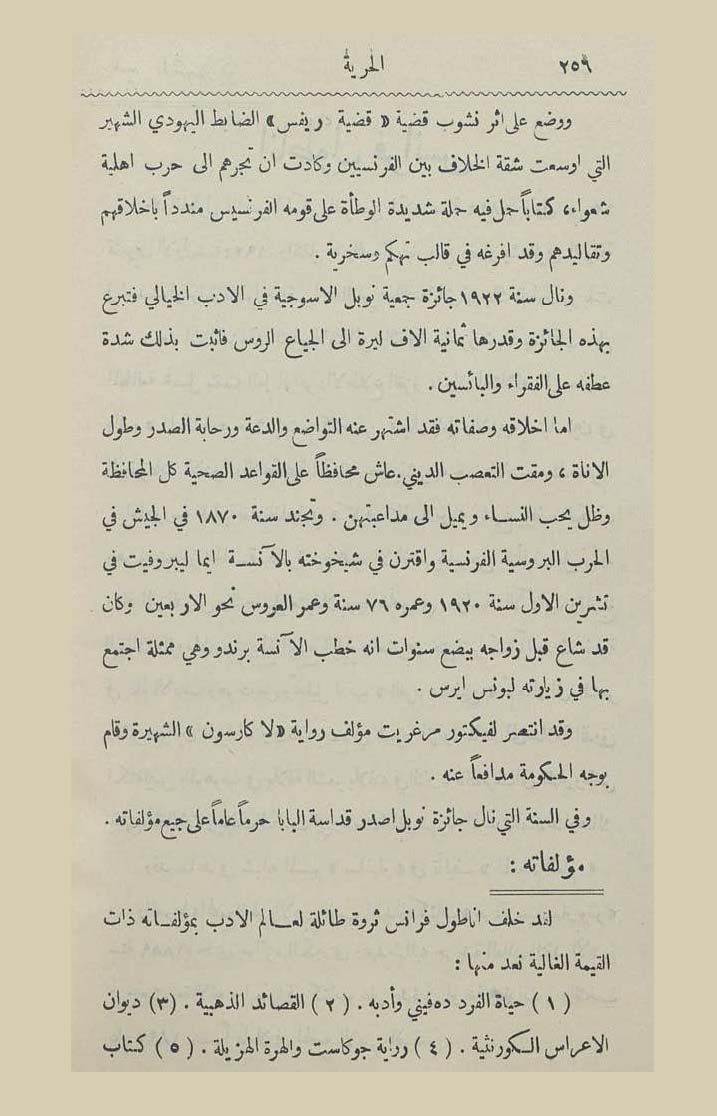 ٢٥٩ الحرية
ووضع على اثر نشوب قضية « قضية ريفس » الضابط اليهودي الشهير
التي اوسعت شقة الخلاف بين الفرنسيين وكادت ان تجرهم الى حرب اهلية
شعواء، كتاباً حمل فيه حملة شديدة الوطأة على قومه الفرنسيس مندداً باخلاقهم
وتقاليدهم وقد افرغه في قالب تهكم وسخرية .
ونال سنة ١٩٢٢ جائزة جمعية نوبل الاسوجية في الادب الخيالي فتبرع
بهذه الجائزة وقدرها ثمانية الاف ليرة الى الجياع الروس فاثبت بذلك شدة
عطفه على الفقراء والبائسين .
اما اخلاقه وصفاته فقد اشتهر عنه التواضع والدعة ورحابة الصدر وطول
الاناة ، ومقت التعصب الديني . عاش محافظاً على القواعد الصحية كل المحافظة
وظل يحب النساء ويميل الى مداعبتهن . وتجند سنة ١٨٧٠ في الجيش في
الحرب البروسية الفرنسية واقترن في شيخوخته بالآنسة ايما ليبروفيت في
تشرين الاول سنة ١٩٢٠ وعمره ٧٦ سنة وعمر العروس نحو الاربعين وكان
قد شاع قبل زواجه ببضع سنوات انه خطب الآنسة برندو وهي ممثلة اجتمع
بها في زيارته لبونس ايرس .
وقد انتصر لفيكتور مرغريت مؤلف رواية «لا كارسون » الشهيرة وقام
بوجه الحكومة مدافعاً عنه .
وفي السنة التي نال جائزة نوبل اصدر قداسة البابا حرماً عاماً على جميع مؤلفاته .
مؤلفاته :
لقد خلف اناطول فرانس ثروة طائلة لعالم الادب بمؤلفاته ذات
القيمة الغالية نعد منها :
( ١ ) حياة الفرد ده فيني وأدبه . ( ٢ ) القصائد الذهبية . (٣) ديوان
الاعراس الكورنثية . ( ٤ ) رواية جوكاست والهرة الهزيلة . ( ٥ ) كتاب